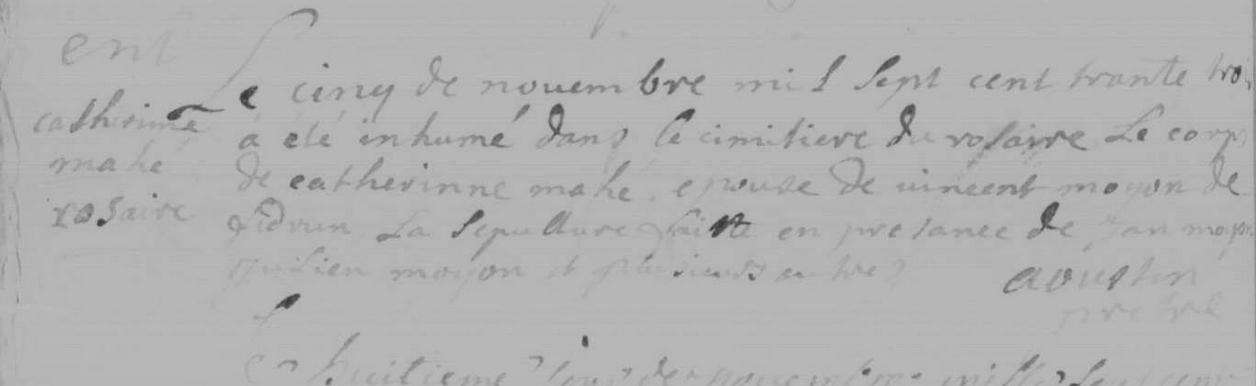 ent
catherinne
mahé
rosaire
Le cinq de novembre mil sept cent trante tro
a été inhumé dans le cimitiere du rosaire Le corp
de catherinne mahé epouse de vincent moyon de
La sepulture faiste en presance de jan moyon
julien moyon et plusieurs autres
aoustin
pretre
huitieme jour de novembre mille sept cent